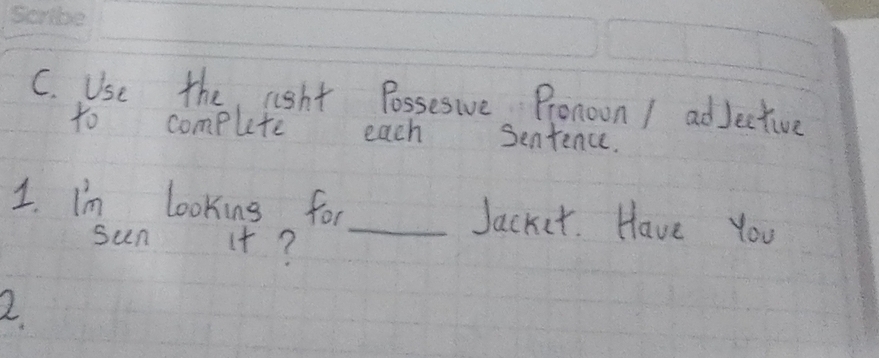 Scribe
C. Use the right Possesive Pronoun / adjective
to complete each sentence.
1. I'm looking for ____ Jacket. Have you
seen it?
2.